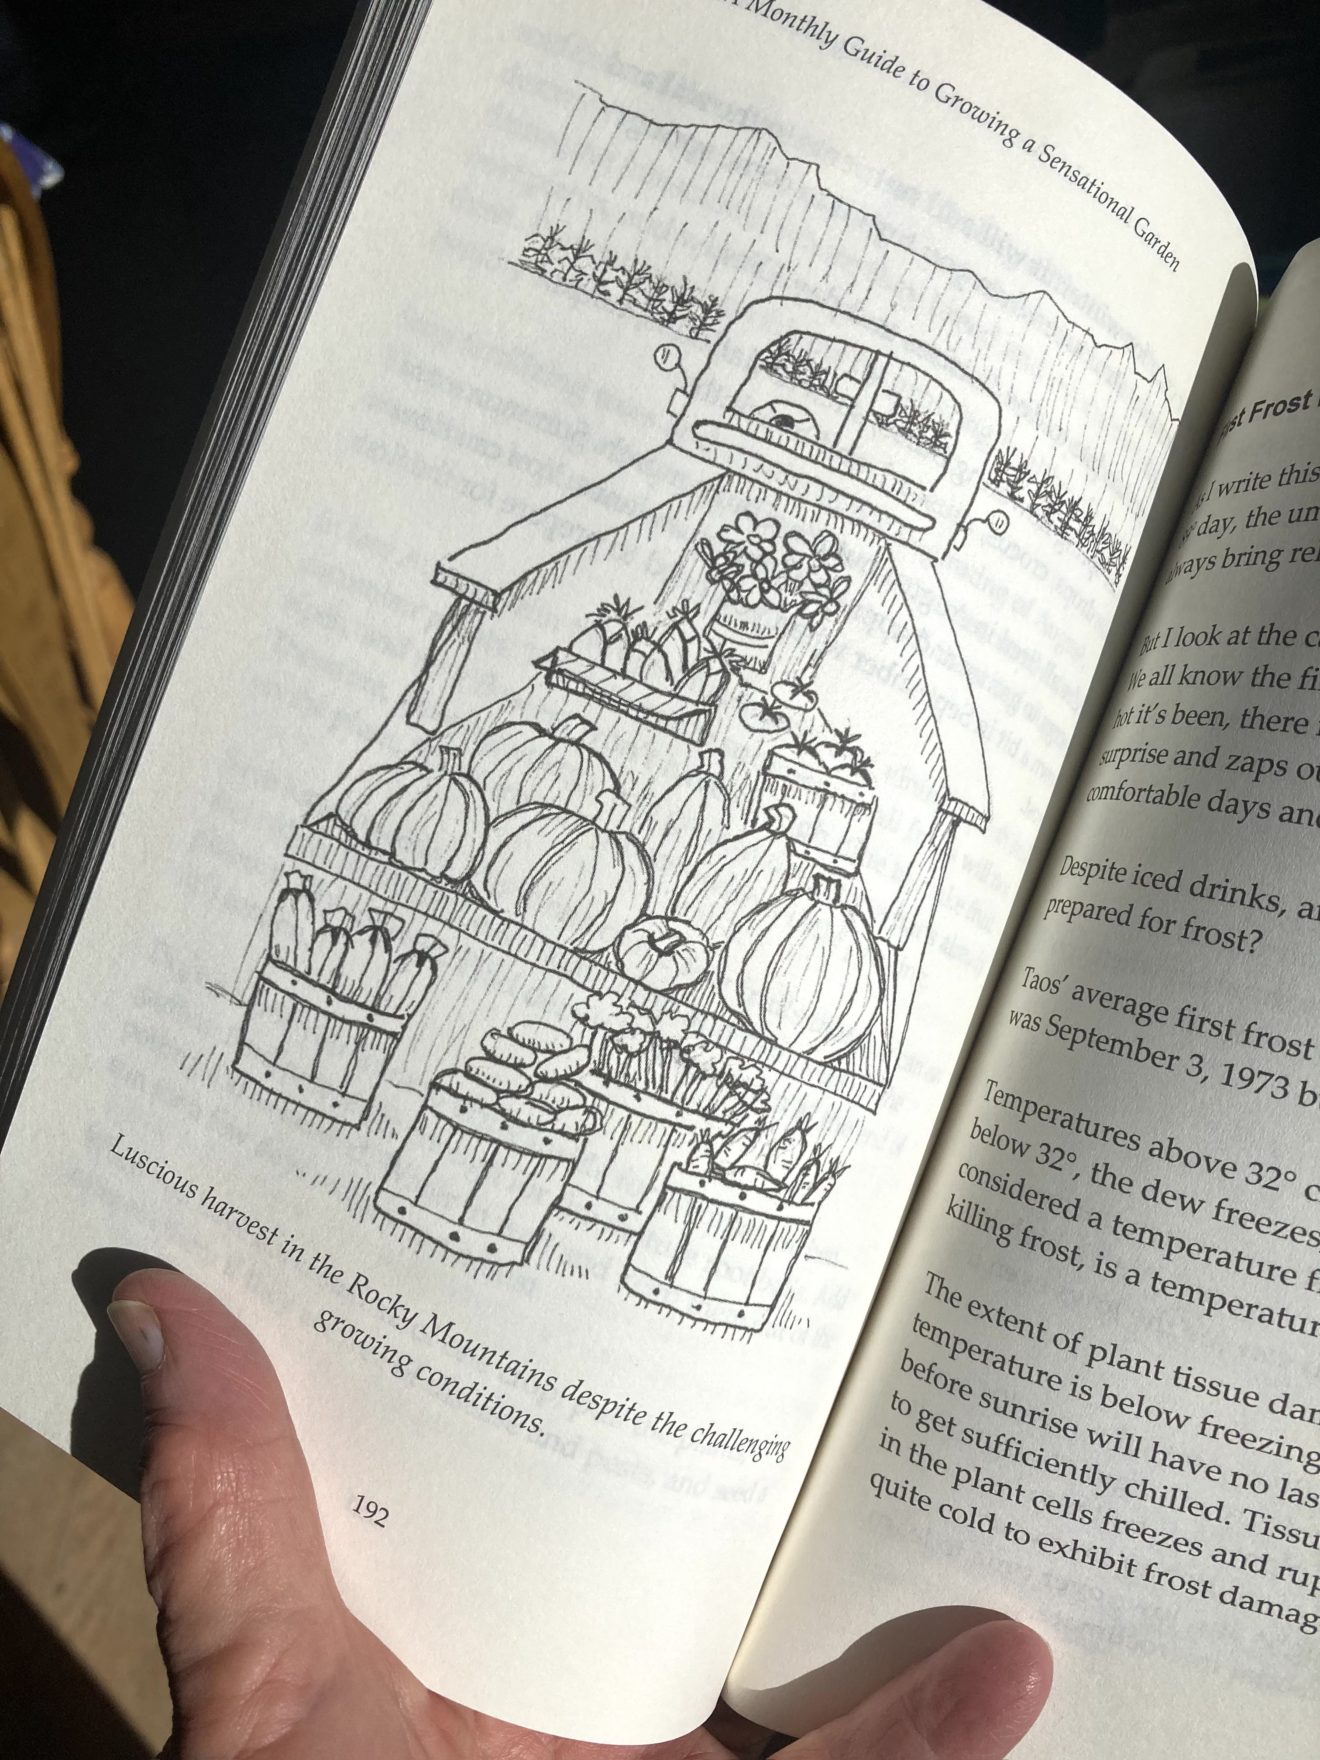 Monthly Guide to Growing a Sensational Garden
Luscious harvest in the Rocky Mountains despite the challenging
growing conditions.
192
Frost
I write this
day, the
always bring
But I look at the
We all know the
hot it's been, there
surprise and zaps
comfortable days
Despite iced drinks,
prepared for frost?
Taos' average first frost
was September 3, 1973
Temperatures above 32°
below 32°, the dew freezes,
considered a temperature
killing frost, is a
The extent of plant tissue
temperature is below freezing
before sunrise will have no
to get sufficiently chilled.
in the plant cells freezes and
quite cold to exhibit frost